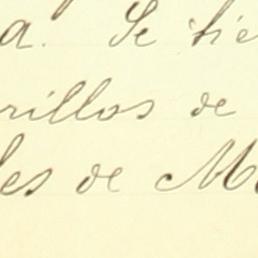 a. Se tie
rillos de
les de M